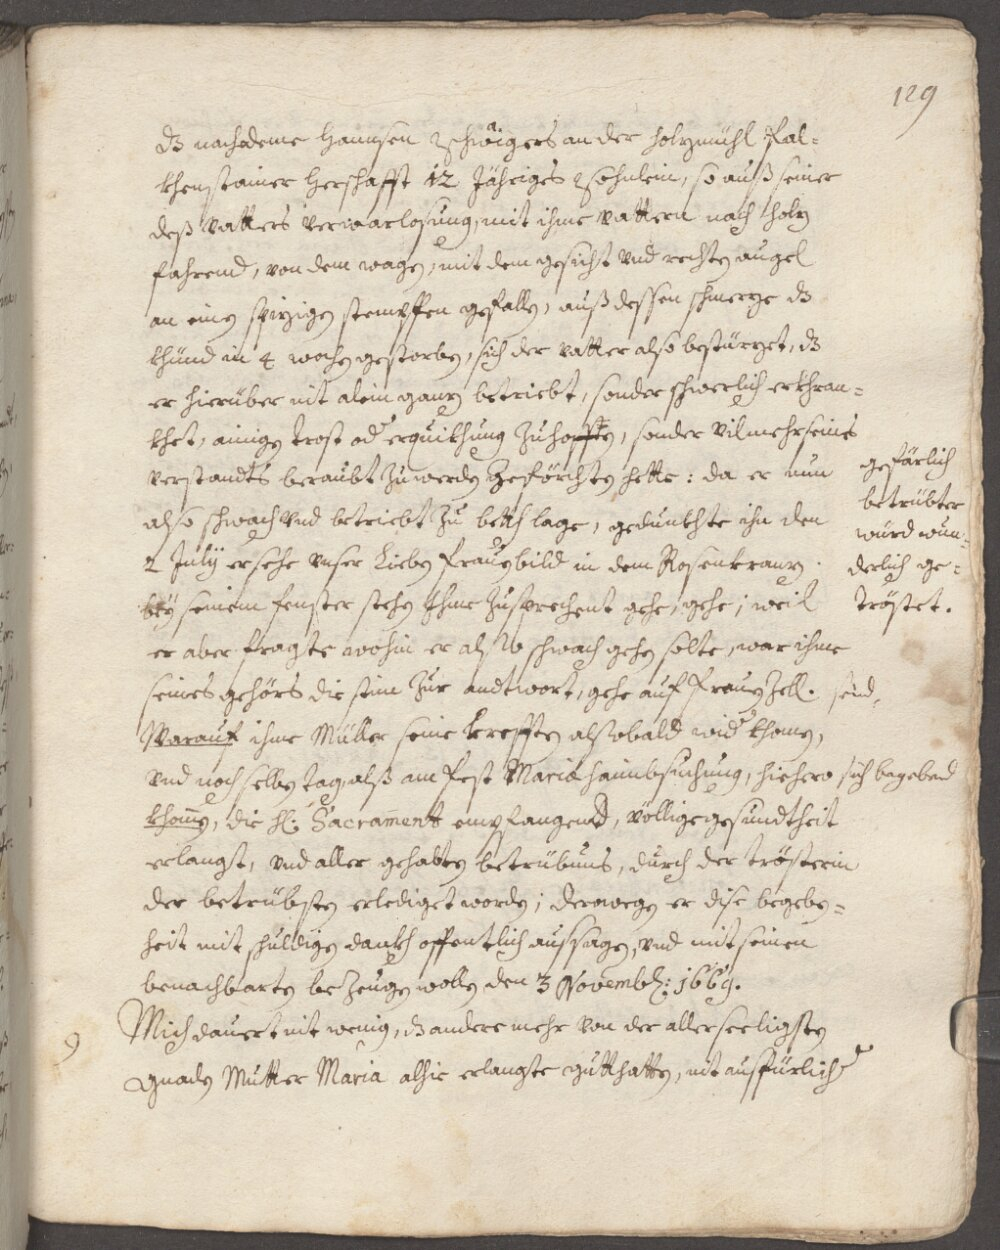 129
dz nachdeme Hannsen Zschäigers an der Holzmühl Fal-
khenstainer Herschafft 12 Jähriges Söhnlein, so auß seiner
deß Vatters verwarlosung, mit ihme Vattern nach Holz
fahrend, von dem wagen, mit dem gesicht und rechten augel
an einen spizigen stempffen gefallen, auß dessen schmerze dz
khünd in 4 wochen gestorben, sich der Vatter also bestürzet, dz
er hierüber nit alein ganz betriebt, sonder schwerlich erkhran-
khet, ainigen trost oder erquikhung zuhoffen, sonder vilmehr seines
verstandts beraubt zuwerden geförchten hette: da er nun
also schwach und betriebt zu beth lage, gedunkhte ihn den
2 July er sehe unser Lieben Frauen bild in dem Rosenkranz
bey seinem fenster stehen Ihme zusprechent gehe, gehe; weil
er aber fragte wohin er also schwach gehen solte, war ihme
seines gehörs die stim zur andtwort, gehe auf Frauenzell. seind,
Warauf ihme Müller seine kreffte alßobald wider khomen,
und noch selben tag, alß am fest Mariæ haimbsuchung, hiehero sich begebend
khomen, die hl: Sacrament empfangend, völlige gesundtheit
erlangt, und aller gehabten betrübnus, durch der trösterin
der betrübten erlediget worden; derwegen er dise begeben-
heit mit schuldigen dankh offentlich aussagen, und mit seinen
benachbarten bezeugen wollen den 3 Novembr: 1669.
gefärlich
betrübter
würd wun-
derlich ge-
tröstet.
9
Mich dauert nit wenig, dz andere mehr von der allerseeligsten
gnaden Mutter Maria alhie erlangte gutthatten, nit ausfürlicher